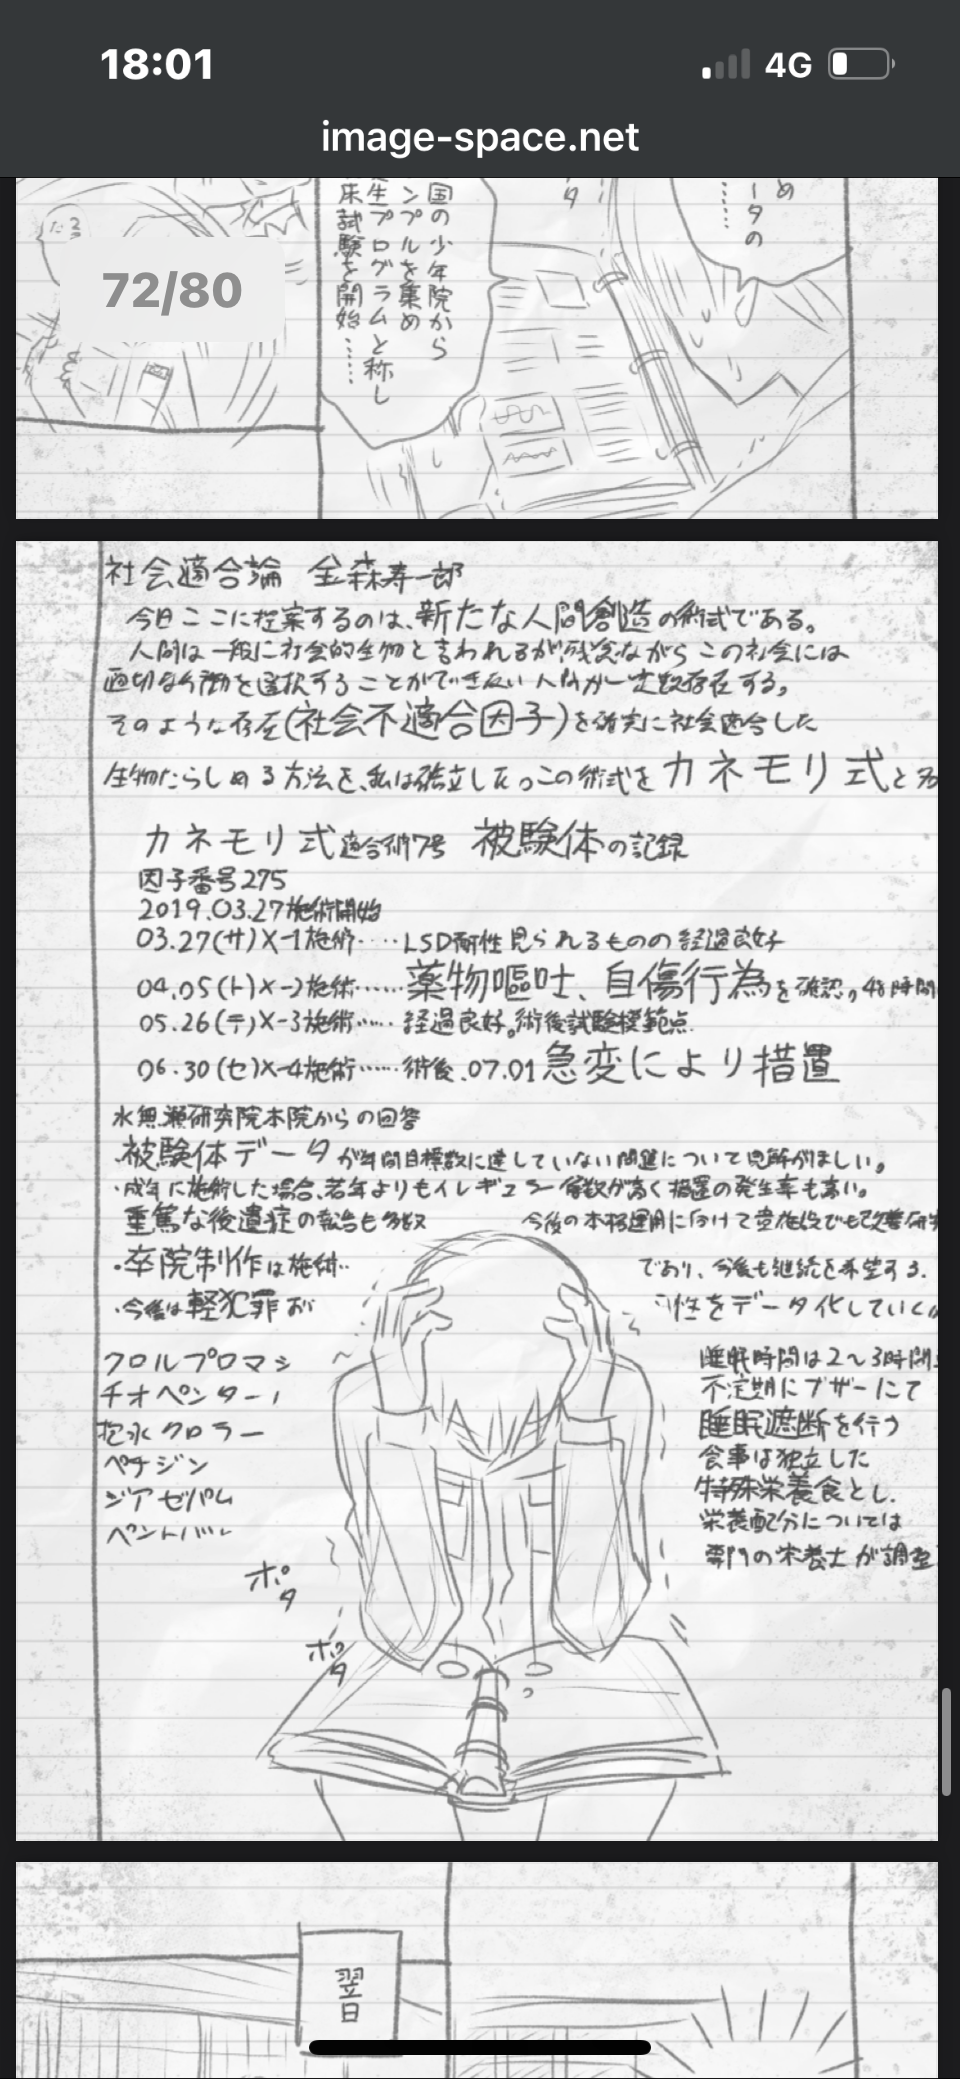 18:01
4G
image-space.net
72/80
国の少年院から
ンプルを集め
生プログラムと称し
床試験を開始……
タ
め
ータの
……
社会適合論 金森寿一郎
今日ここに提案するのは、新たな人間創造の術式である。
人間は一般に社会的生物と言われるが、残念ながらこの社会には
適切な行動を選択することができない人間が一定数存在する。
そのような存在(社会不適合因子)を確実に社会適合した
生物たらしめる方法を、私は確立した。この術式をカネモリ式と名
カネモリ式適合術7号 被験体の記録
因子番号275
2019.03.27施術開始
03.27(サ)X-1施術‥‥LSD耐性見られるものの経過良好
04.05(ト)X-2施術……薬物嘔吐、自傷行為を確認。48時間
05.26(テ)X-3施術…… 経過良好。術後試験標範点
06.30(セ)X-4施術……術後.07.01急変により措置
水無瀬研究院本院からの回答
・被験体データが年間目標数に達していない問題について見解がほしい。
・成年に施術した場合、若年よりもイレギュラー係数が高く措置の発生率も高い。
重篤な後遺症の報告も多数 今後の本格運用に向けて
・卒院制作は施術‥ であり、今後も継続を希望する.
・今後は軽犯罪 性をデータ化していく
クロルプロマジ
チオペンター
抱水クロラー
ペチジン
ジアゼパム
ペントバル
睡眠時間は2~3時間
不定期にブザーにて
睡眠遮断を行う
食事は独立した
特殊栄養食とし.
栄養配分については
専門の栄養士が調整
ポタ
ポタ
翌日